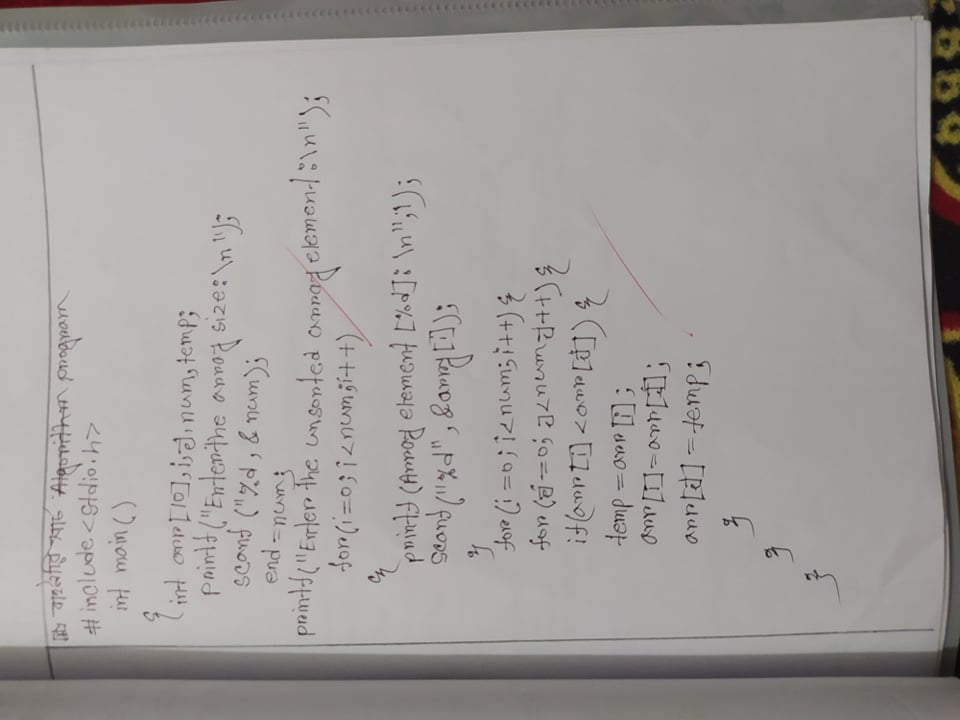 বাইনারি সার্চ Algorithm program
#include<stdio.h>
int main()
{ int arr[10],i,j,num,temp;
printf("Enter the array size:\n");
scanf("%d, &num);
end=num;
printf("Enter the unsorted array element:\n");
for(i=0;i<num;i++)
{
printf(Array element [%d]:\n",i);
scanf("%d", &array[i]);
}
for(i=0;i<num;i++){
for(j=0;j<num;j++){
if(arr[i]<arr[j]) {
temp=arr[i];
arr[i]=arr[j];
arr[j]=temp;
}
}
}